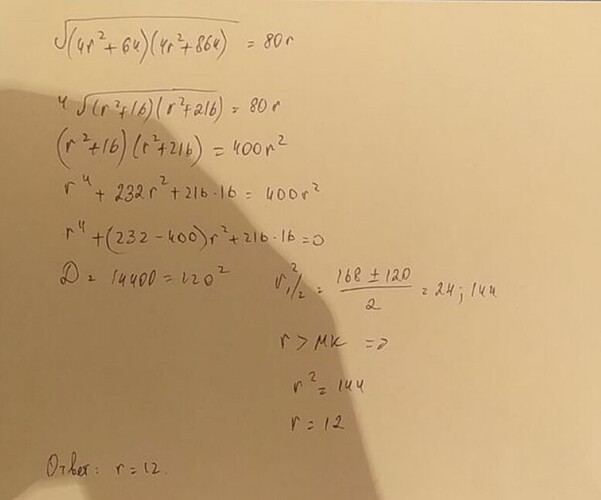 √(4r²+64)(4r²+864) = 80r
4√(r²+16)(r²+216) = 80r
(r²+16)(r²+216) = 400r²
r⁴ + 232r² + 216·16 = 400r²
r⁴+(232-400)r²+216·16=0
D = 14400 = 120²
r²₁/₂ = (168 ± 120)/2 = 24; 144
r > MK =>
r² = 144
r = 12
Ответ: r = 12.